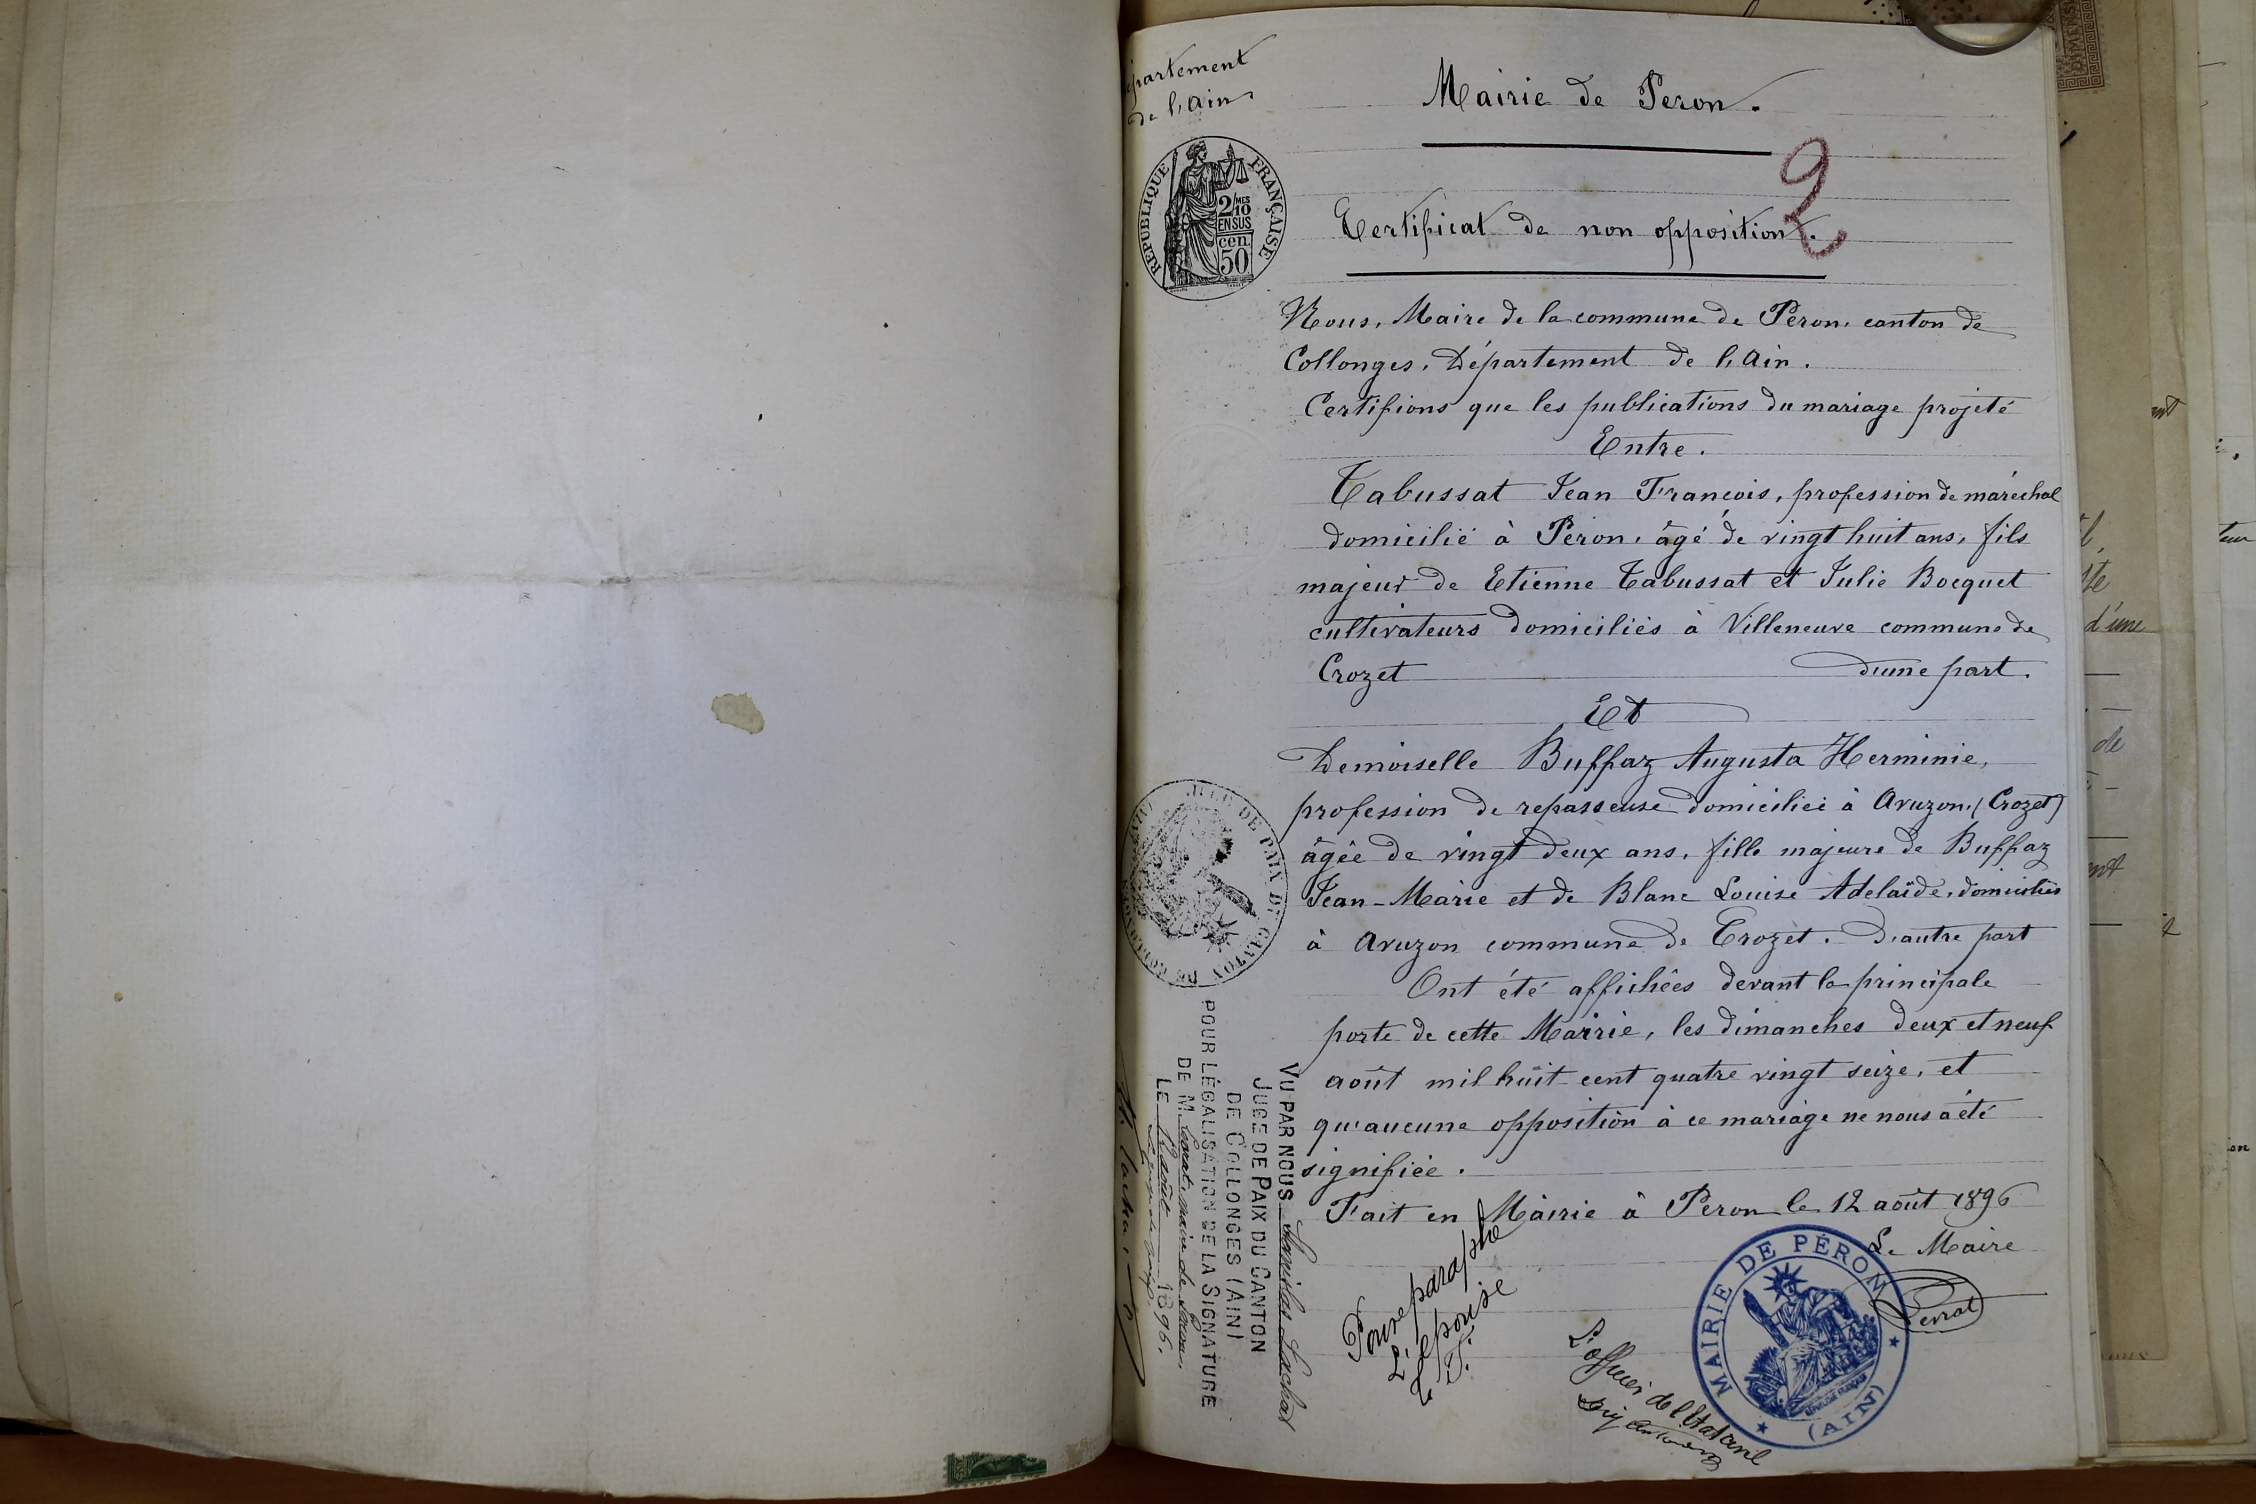 Département
de l'Ain
Mairie de Peron.
2
RÉPUBLIQUE FRANÇAISE
2/10 MES
EN SUS
cen.
50
Certificat de non opposition.
Nous, Maire de la commune de Péron, canton de
Collonges, Département de l'Ain.
Certifions que les publications du mariage projeté
Entre.
Tabussat Jean François, profession de maréchal
domicilié à Péron, âgé de vingt huit ans, fils
majeur de Etienne Tabussat et Julie Bocquet
cultivateurs domiciliés à Villeneuve commune de
Crozet d'une part.
Et
Demoiselle Buffaz Augusta Herminie,
profession de repasseuse domiciliée à Avuzon, (Crozet)
âgée de vingt deux ans, fille majeure de Buffaz
Jean-Marie et de Blanc Louise Adelaïde, domiciliés
à Avuzon commune de Crozet. D'autre part
Ont été affichées devant la principale
porte de cette Mairie, les dimanches deux et neuf
août mil huit cent quatre vingt seize, et
qu'aucune opposition à ce mariage ne nous a été
signifiée.
Fait en Mairie à Peron le 12 août 1896
Le Maire
Perrat
MAIRIE DE PÉRON
(AIN)
Pour paraphe
L'épouse
T.
L'officier de l'Etat civil
JUGE DE PAIX DU CANTON DE COLLONGES
VU PAR NOUS
JUGE DE PAIX DU CANTON
DE COLLONGES (AIN)
POUR LÉGALISATION DE LA SIGNATURE
DE M. Perrat, maire de Peron,
LE août 1896.